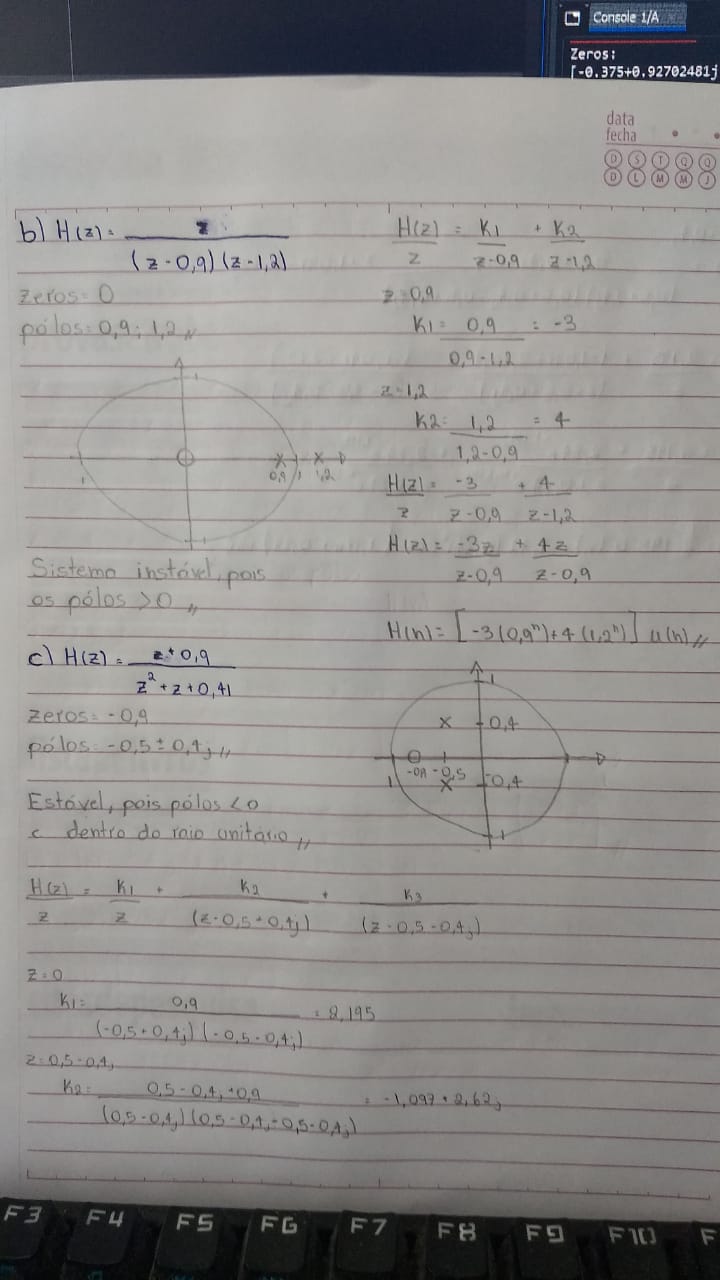 Console 1/A
Zeros:
[-0.375+0.92702481j
data
fecha
D S T Q Q
D L M M J
b) H(z) = z / (z - 0,9)(z - 1,2)
zeros = 0
pólos = 0,9 ; 1,2 //
0,9 1 1,2
1
1
1
Sistema instável, pois
os pólos > 0 //
H(z)/z = K1/(z - 0,9) + K2/(z - 1,2)
z = 0,9
K1 = 0,9/(0,9 - 1,2) = -3
z = 1,2
K2 = 1,2/(1,2 - 0,9) = 4
H(z)/z = -3/(z - 0,9) + 4/(z - 1,2)
H(z) = -3z/(z - 0,9) + 4z/(z - 0,9)
H(n) = [-3(0,9ⁿ) + 4(1,2ⁿ)] u(n) //
c) H(z) = z + 0,9 / z² + z + 0,41
zeros = -0,9
pólos = -0,5 ± 0,4j //
Estável, pois pólos < 0
e dentro do raio unitário //
1
0,4
-0,9 -0,5
1
-0,4
1
H(z)/z = K1/z + K2/(z - 0,5 + 0,4j) + K3/(z - 0,5 - 0,4j)
z = 0
K1 = 0,9/(-0,5 + 0,4j)(-0,5 - 0,4j) = 2,195
z = 0,5 - 0,4j
K2 = 0,5 - 0,4j + 0,9/(0,5 - 0,4j)(0,5 - 0,4j - 0,5 - 0,4j) = -1,097 + 2,62j
F3 F4 F5 F6 F7 F8 F9 F10 F